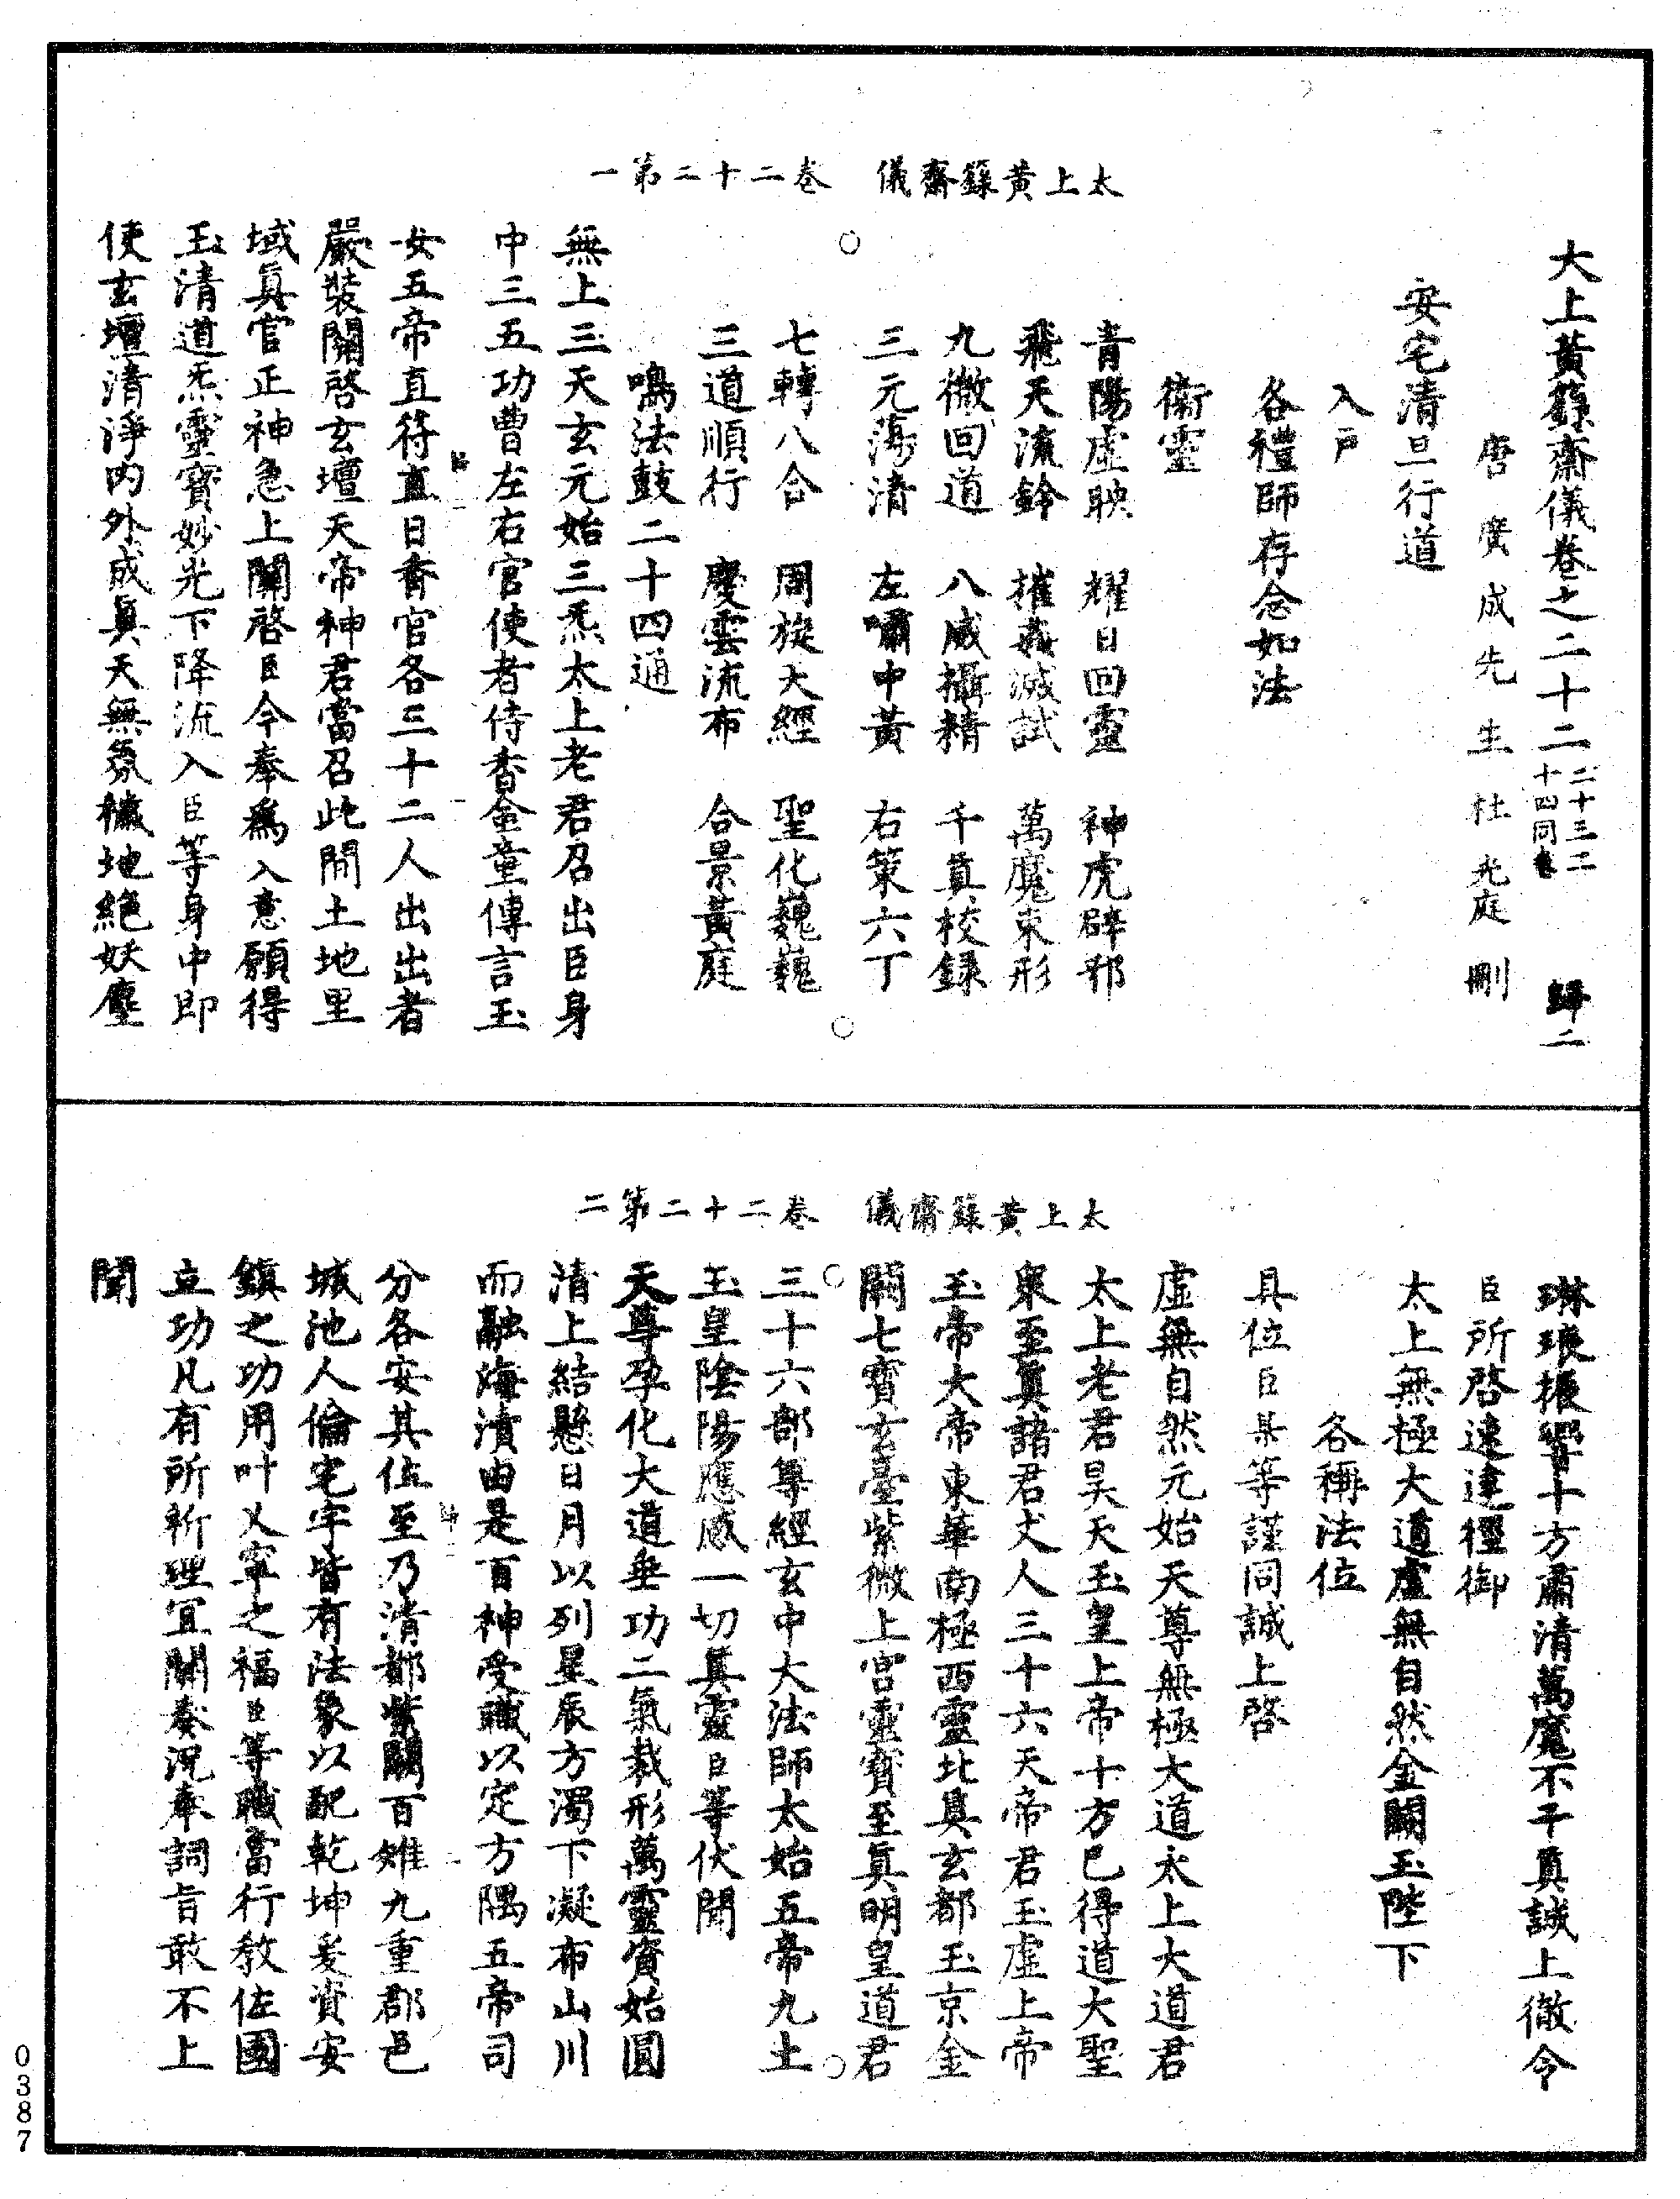 太上黃籙齋儀　卷二十二第一
大上黃籙齋儀卷之二十二二十三二十四同卷　歸二
唐廣成先生杜光庭刪
安宅清旦行道
入戶
各禮師存念如法
衛靈
青陽虛映　耀日回靈　神虎辟邪
飛天流鈴　摧姦滅試　萬魔束形
九微回道　八威攝精　千真校錄
三元蕩清　左嘯中黃　右策六丁
七轉八合　周旋大經　聖化巍巍
三道順行　慶雲流布　合景黃庭
鳴法鼓二十四通
無上三天玄元始三炁太上老君召出臣身
中三五功曹左右官使者侍香金童傳言玉
女五帝直符直日香官各三十二人出出者
嚴裝關啓玄壇天帝神君當召此間土地里
域真官正神急上關啓臣今奉爲入意願得
玉清道炁靈寶妙光下降流入臣等身中即
使玄壇清淨內外成真天無氛穢地絕妖塵
太上黃籙齋儀　卷二十二第二
琳琅振響十方肅清萬魔不干真誠上徹令
臣所啓速達徑御
太上無極大道虛無自然金闕玉陛下
各稱法位
具位臣某等謹同誠上啓
虛無自然元始天尊無極大道太上大道君
太上老君昊天玉皇上帝十方已得道大聖
衆至真諸君丈人三十六天帝君玉虛上帝
玉帝大帝東華南極西靈北真玄都玉京金
闕七寶玄臺紫微上宮靈寶至真明皇道君
三十六部尊經玄中大法師太始五帝九土
玉皇陰陽應感一切真靈臣等伏聞
天尊孕化大道垂功二氣裁形萬靈資始圓
清上結懸日月以列星辰方濁下凝布山川
而融海瀆由是百神受職以定方隅五帝司
分各安其位至乃清都紫闕百雉九重郡邑
城池人倫宅宇皆有法象以配乾坤爰資安
鎮之功用叶乂寧之福臣等職當行教佐國
立功凡有所祈理宜關奏況奉詞旨敢不上
聞
0387